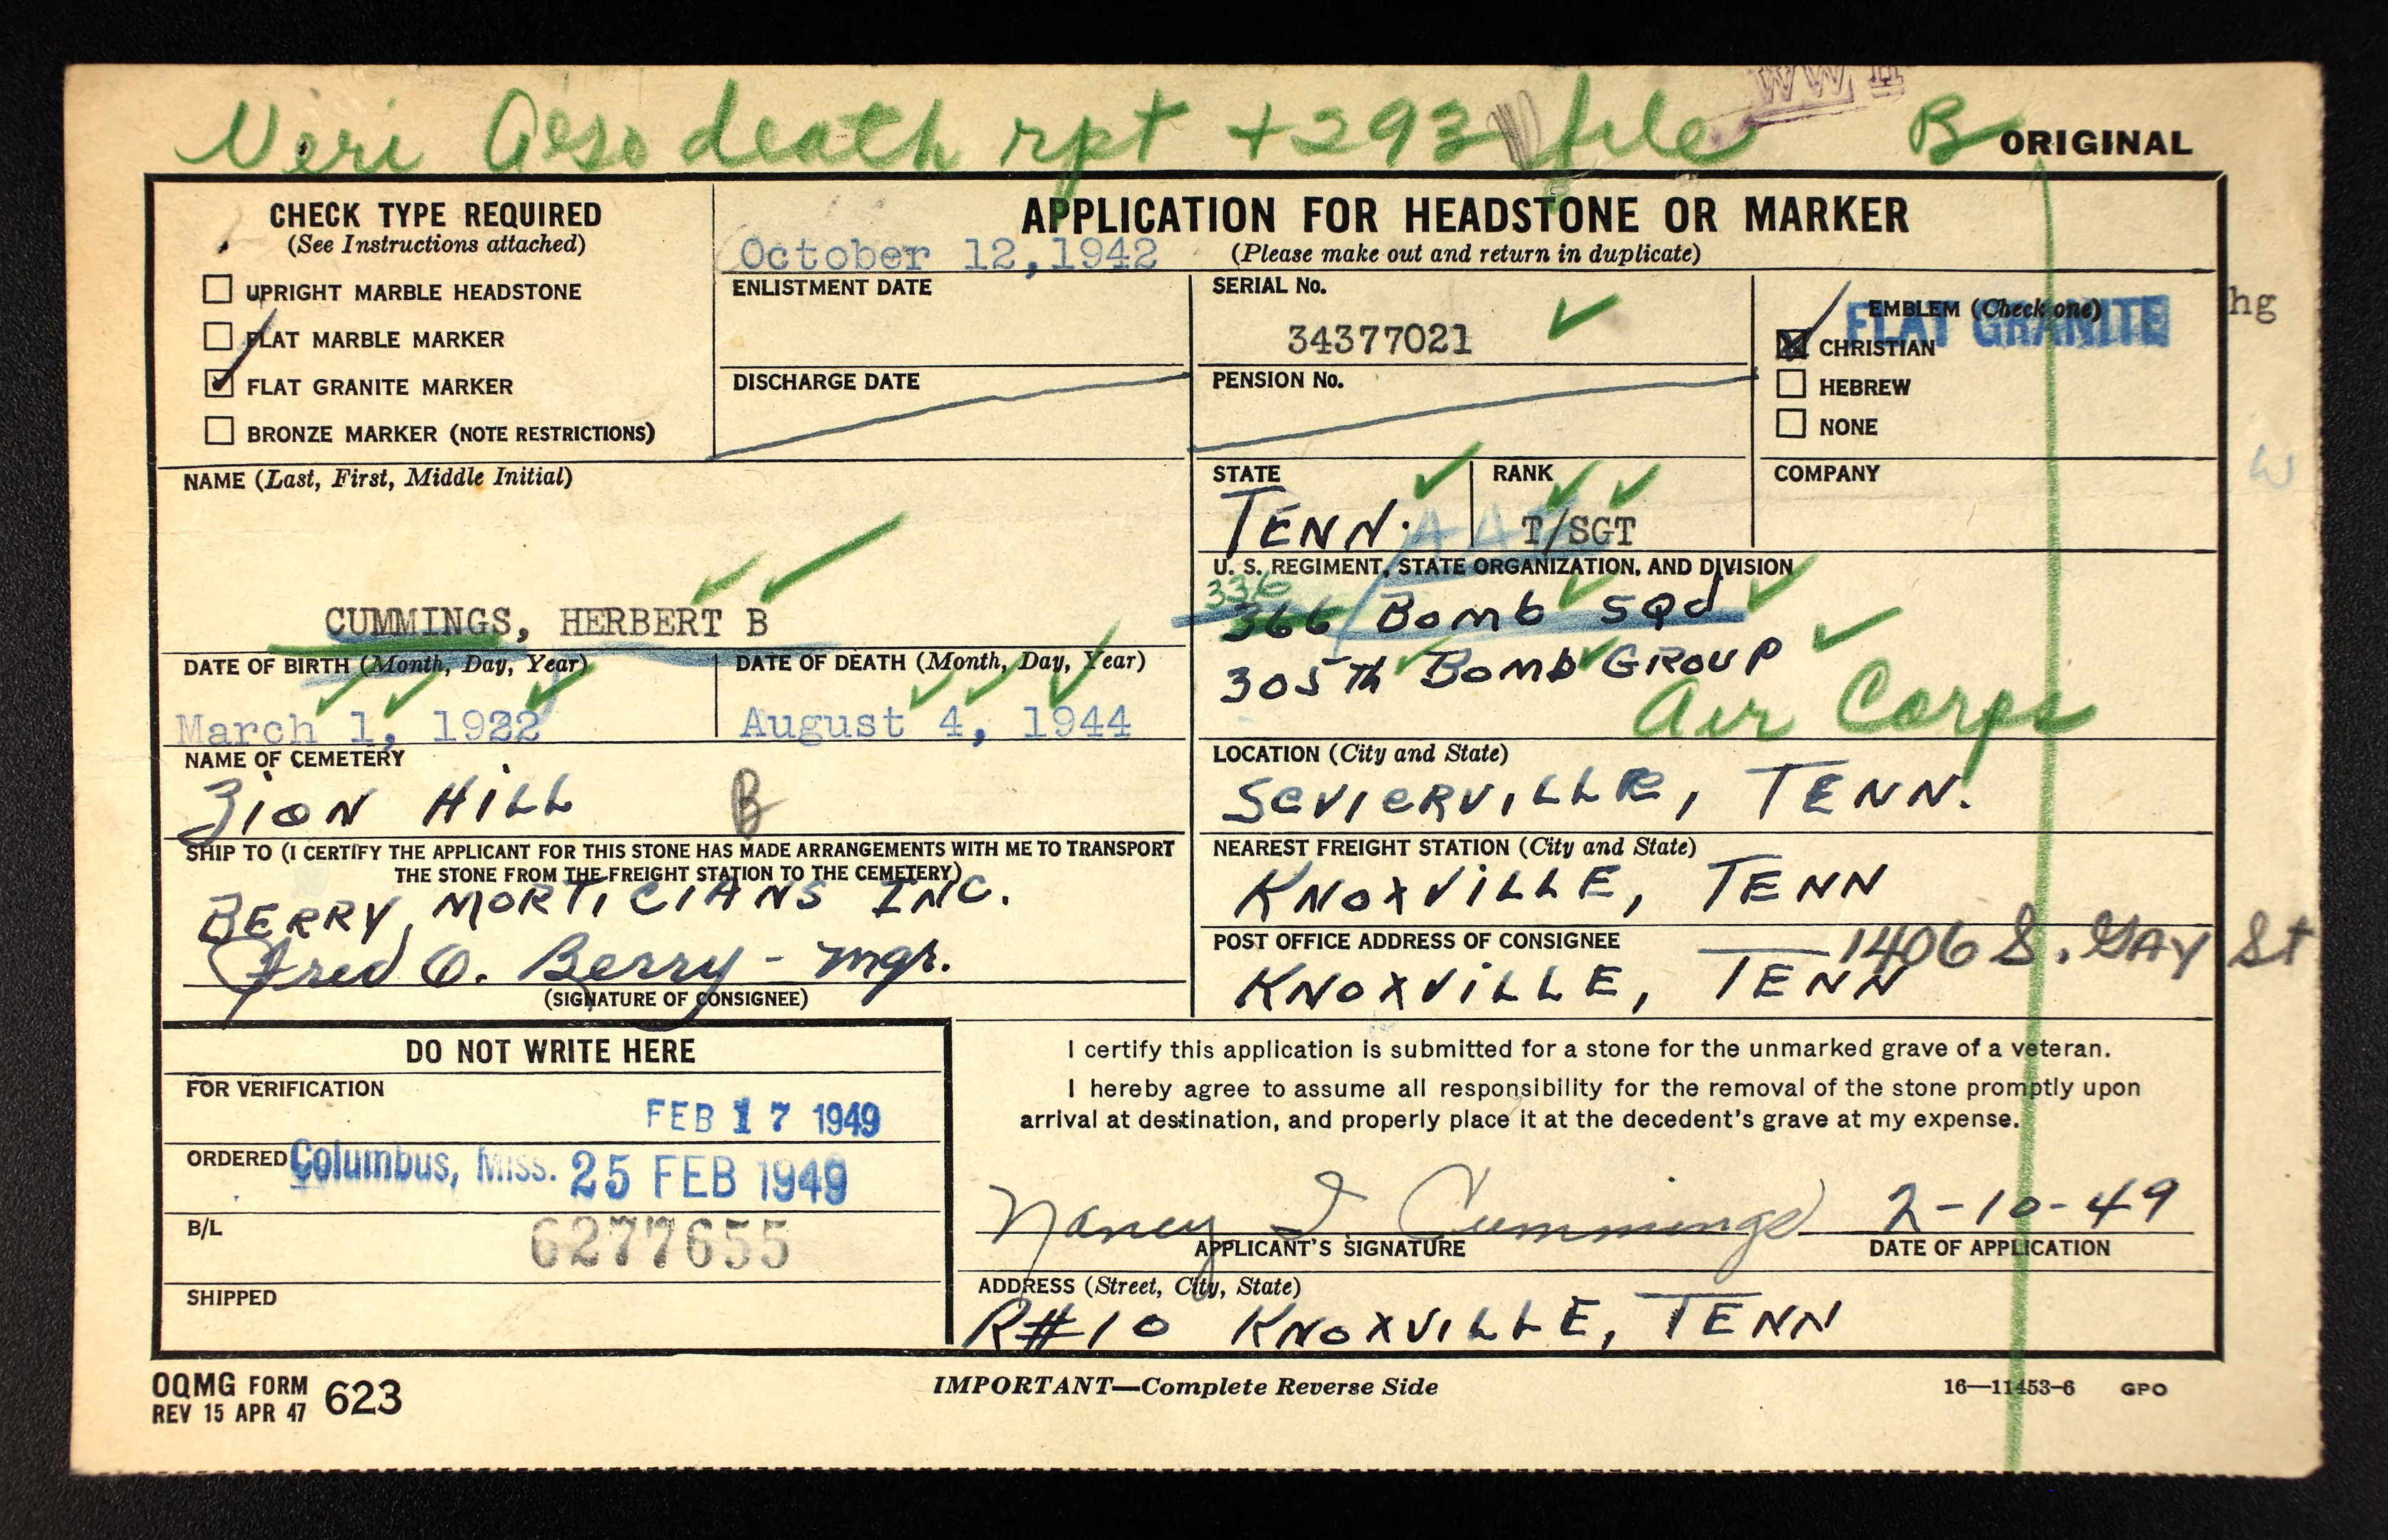 WW II
Veri Aeso death rpt + 293 file B
ORIGINAL
CHECK TYPE REQUIRED
(See Instructions attached)
UPRIGHT MARBLE HEADSTONE
FLAT MARBLE MARKER
FLAT GRANITE MARKER
BRONZE MARKER (NOTE RESTRICTIONS)
APPLICATION FOR HEADSTONE OR MARKER
(Please make out and return in duplicate)
October 12,1942
ENLISTMENT DATE
DISCHARGE DATE
SERIAL No.
34377021
PENSION No.
EMBLEM (Check one)
FLAT GRANITE
hg
CHRISTIAN
HEBREW
NONE
NAME (Last, First, Middle Initial)
CUMMINGS, HERBERT B
STATE
TENN.
RANK
T/SGT
COMPANY
U. S. REGIMENT, STATE ORGANIZATION, AND DIVISION
336
366 Bomb SQd
305Th Bomb GROUP
Air Corps
DATE OF BIRTH (Month, Day, Year)
March 1, 1922
DATE OF DEATH (Month, Day, Year)
August 4, 1944
NAME OF CEMETERY
ZION HILL B
LOCATION (City and State)
SEVIERVILLE, TENN.
SHIP TO (I CERTIFY THE APPLICANT FOR THIS STONE HAS MADE ARRANGEMENTS WITH ME TO TRANSPORT
THE STONE FROM THE FREIGHT STATION TO THE CEMETERY)
BERRY MORTICIANS INC.
Fred O. Berry - Mgr.
(SIGNATURE OF CONSIGNEE)
NEAREST FREIGHT STATION (City and State)
KNOXVILLE, TENN
POST OFFICE ADDRESS OF CONSIGNEE
1406 S. GAY St
KNOXVILLE, TENN
DO NOT WRITE HERE
FOR VERIFICATION
FEB 17 1949
ORDERED Columbus, Miss. 25 FEB 1949
B/L
6277655
SHIPPED
I certify this application is submitted for a stone for the unmarked grave of a veteran.
I hereby agree to assume all responsibility for the removal of the stone promptly upon
arrival at destination, and properly place it at the decedent's grave at my expense.
Nancy I Cummings 2-10-49
APPLICANT'S SIGNATURE
DATE OF APPLICATION
ADDRESS (Street, City, State)
R#10 KNOXVILLE, TENN
OQMG FORM 623
REV 15 APR 47
IMPORTANT—Complete Reverse Side
16—11453-6 GPO